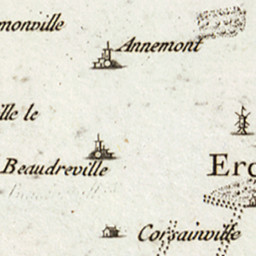 monville
Annemont
ille le
Beaudreville
Erc
Corsainville